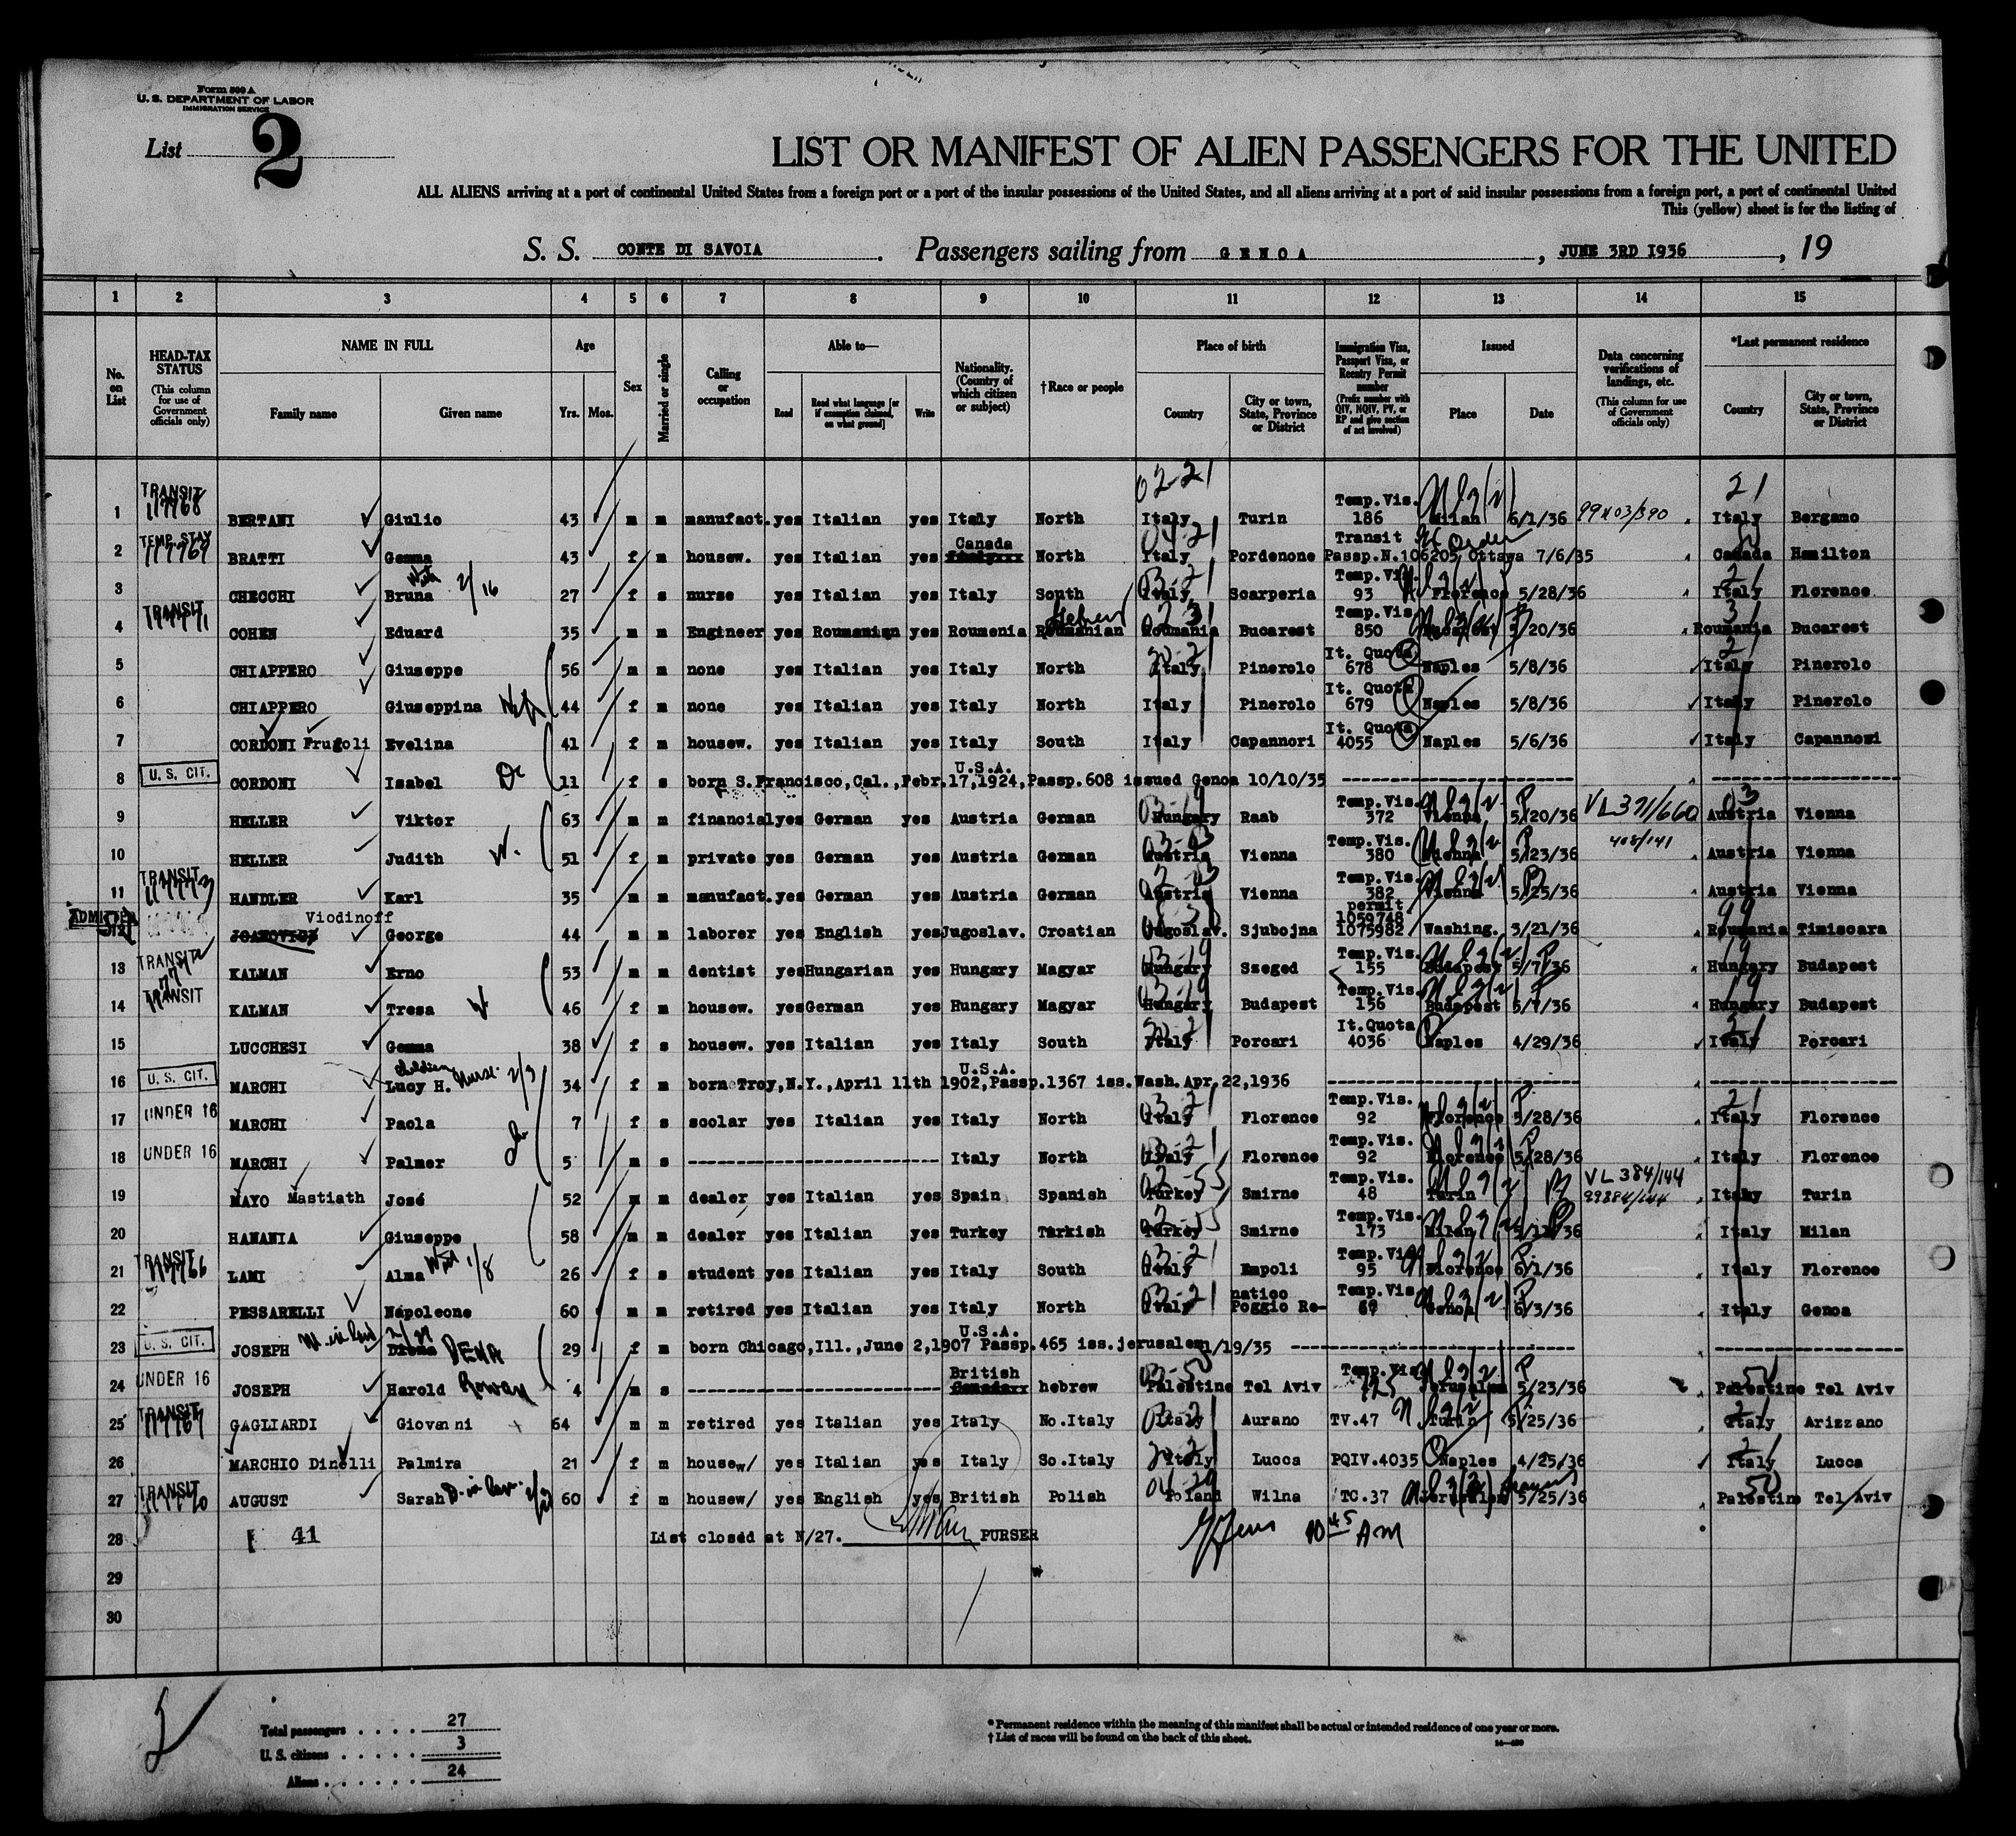 Form 500 A
U. S. DEPARTMENT OF LABOR
IMMIGRATION SERVICE
List 2
LIST OR MANIFEST OF ALIEN PASSENGERS FOR THE UNITED
ALL ALIENS arriving at a port of continental United States from a foreign port or a port of the insular possessions of the United States, and all aliens arriving at a port of said insular possessions from a foreign port, a port of continental United
This (yellow) sheet is for the listing of
S. S. CONTE DI SAVOIA. Passengers sailing from GENOA, JUNE 3RD 1936, 19
1 2 3 4 5 6 7 8 9 10 11 12 13 14 15
No. on List
HEAD-TAX STATUS (This column for use of Government officials only)
NAME IN FULL Family name Given name
Age Yrs. Mos.
Sex
Married or single
Calling or occupation
Able to— Read Read what language [or if exemption claimed, on what ground] Write
Nationality. (Country of which citizen or subject)
†Race or people
Place of birth Country City or town, State, Province or District
Immigration Visa, Passport Visa, or Reentry Permit number (Prefix number with QIV, NQIV, PV, or RP and give section of act involved)
Issued Place Date
Data concerning verifications of landings, etc. (This column for use of Government officials only)
*Last permanent residence Country City or town, State, Province or District
1 TRANSIT 117768 BERTANI Giulio 43 m m manufact. yes Italian yes Italy North 02-21 Italy Turin Temp.Vis. 186 Milan 6/1/36 99x03/390 21 Italy Bergamo
2 TEMP. STAY 117769 BRATTI Gemma 43 f m housew. yes Italian yes Canada North Italy Pordenone Transit Passp.N.106205, Ottawa 7/6/35 Canada Hamilton
3 CHECCHI Bruna 2/16 27 f s nurse yes Italian yes Italy South Italy Scarperia Temp.Vis. 93 Florence 5/28/36 Italy Florence
4 TRANSIT COHEN Eduard 35 m m Engineer yes Roumanian yes Roumenia Roumanian Hebrew Roumania Bucarest Temp.Vis. 850 Bucarest 5/20/36 Roumania Bucarest
5 CHIAPPERO Giuseppe 56 m m none yes Italian yes Italy North Italy Pinerolo It. Quota 678 Naples 5/8/36 Italy Pinerolo
6 CHIAPPERO Giuseppina 44 f m none yes Italian yes Italy North Italy Pinerolo It. Quota 679 Naples 5/8/36 Italy Pinerolo
7 CORDONI Frugoli Evelina 41 f m housew. yes Italian yes Italy South Italy Capannori It. Quota 4055 Naples 5/6/36 Italy Capannori
8 U. S. CIT. CORDONI Isabel 11 f s born S.Francisco,Cal.,Febr.17,1924,Passp.608 issued Genoa 10/10/35 U.S.A.
9 HELLER Viktor 63 m m financial yes German yes Austria German Hungary Raab Temp.Vis. 372 Vienna 5/20/36 VL 371/660 Austria Vienna
10 HELLER Judith W. 51 f m private yes German yes Austria German Austria Vienna Temp.Vis. 380 Vienna 5/23/36 408/141 Austria Vienna
11 TRANSIT HANDLER Karl 35 m m manufact. yes German yes Austria German Austria Vienna Temp.Vis. 382 Vienna 5/25/36 Austria Vienna
12 ADMITTED JOANOVICI Viodinoff George 44 m m laborer yes English yes Jugoslav. Croatian Jugoslav. Sjubojna permit 1059748 1075982 Washing. 3/21/36 99 Roumania Timisoara
13 TRANSIT KALMAN Erno 53 m m dentist yes Hungarian yes Hungary Magyar Hungary Szeged Temp.Vis. 155 Budapest 5/7/36 Hungary Budapest
14 TRANSIT KALMAN Tresa W 46 f m housew. yes German yes Hungary Magyar Hungary Budapest Temp.Vis. 156 Budapest 5/7/36 Hungary Budapest
15 LUCCHESI Gemma 38 f s housew. yes Italian yes Italy South Italy Porcari It.Quota 4036 Naples 4/29/36 Italy Porcari
16 U. S. CIT. MARCHI Lucy H. 34 f m born Troy,N.Y.,April 11th 1902,Passp.1367 iss.Wash.Apr.22,1936 U.S.A.
17 UNDER 16 MARCHI Paola 7 f s scolar yes Italian yes Italy North Italy Florence Temp.Vis. 92 Florence 5/28/36 Italy Florence
18 UNDER 16 MARCHI Palmer 5 m s Italy North Italy Florence Temp.Vis. 92 Florence 5/28/36 Italy Florence
19 MAYO Mastiath José 52 m m dealer yes Italian yes Spain Spanish Turkey Smirne Temp.Vis. 48 Turin VL 384/144 99384/144 Italy Turin
20 HANANIA Giuseppe 58 m m dealer yes Italian yes Turkey Turkish Turkey Smirne Temp.Vis. 173 Milan Italy Milan
21 TRANSIT LAMI Alma 1/8 26 f s student yes Italian yes Italy South Italy Empoli Temp.Vis. 95 Florence 6/1/36 Italy Florence
22 PESSARELLI Napoleone 60 m m retired yes Italian yes Italy North Italy Poggio Re- natico Temp.Vis. Genoa 6/3/36 Italy Genoa
23 U. S. CIT. JOSEPH DENA 29 f m born Chicago,Ill.,June 2,1907 Passp.465 iss.jerusalem 1/19/35 U.S.A.
24 UNDER 16 JOSEPH Harold Rowan 4 m s British hebrew Palestine Tel Aviv Temp.Vis. Jerusalem 5/23/36 Palestine Tel Aviv
25 TRANSIT GAGLIARDI Giovanni 64 m m retired yes Italian yes Italy No.Italy Italy Aurano TV.47 Turin 5/25/36 Italy Arizzano
26 MARCHIO Dinelli Palmira 21 f m housew/ yes Italian yes Italy So.Italy Italy Lucca PQIV.4035 Naples 4/25/36 Italy Lucca
27 TRANSIT AUGUST Sarah 60 f m housew/ yes English yes British Polish Poland Wilna TC.37 Jerusalem 5/25/36 Palestine Tel Aviv
28 41 List closed at N/27. PURSER 10 45 AM
29
30
Total passengers . . . . 27
U. S. citizens . . . . . 3
Aliens . . . . . . 24
* Permanent residence within the meaning of this manifest shall be actual or intended residence of one year or more.
† List of races will be found on the back of this sheet.